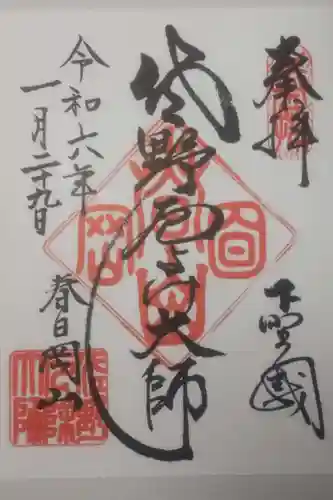 奉拝
下野國
佐野厄よけ大師
令和六年
一月二十九日
春日岡山